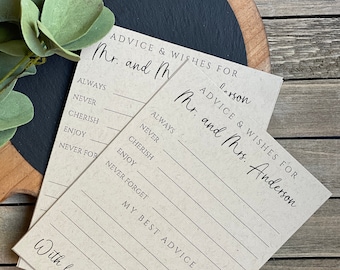 ADVICE & WISHES FOR
Mr. and M
rson
ALWAYS
NEVER
CHERISH
ENJOY
NEVER FOR
With l
ADVICE & WISHES FOR
Mr. and Mrs. Anderson
ALWAYS
NEVER
CHERISH
ENJOY
NEVER FORGET
MY BEST ADVICE